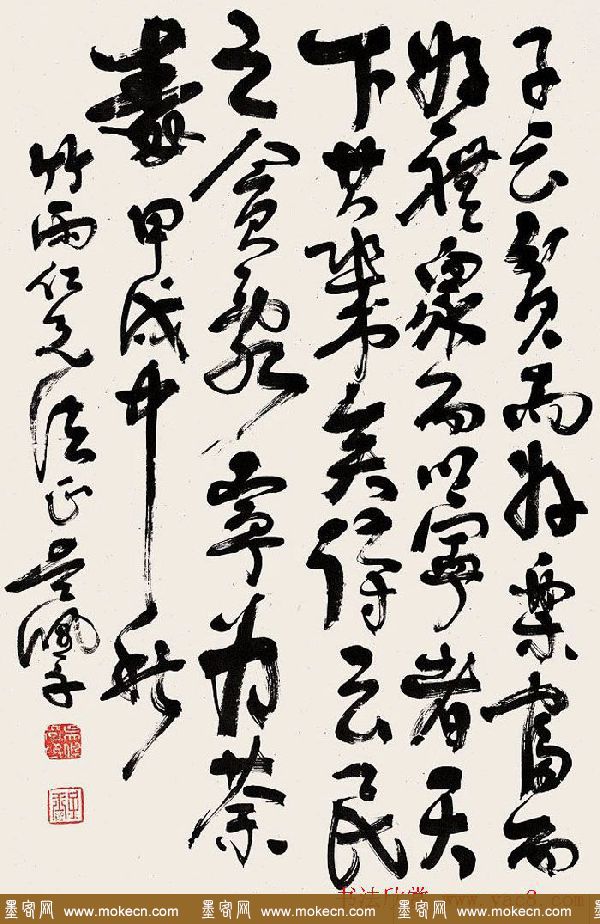 子云貧而好樂富而
好禮眾而以寧者天
下其幾矣詩云民
之貪亂寧為荼
毒甲戌中秋
竹雨仁兄法正吳佩孚
书法欣赏 www.yac8.com
墨客网 www.mokecn.com 墨客网 www.mokecn.com 墨客网 www.mokecn.com